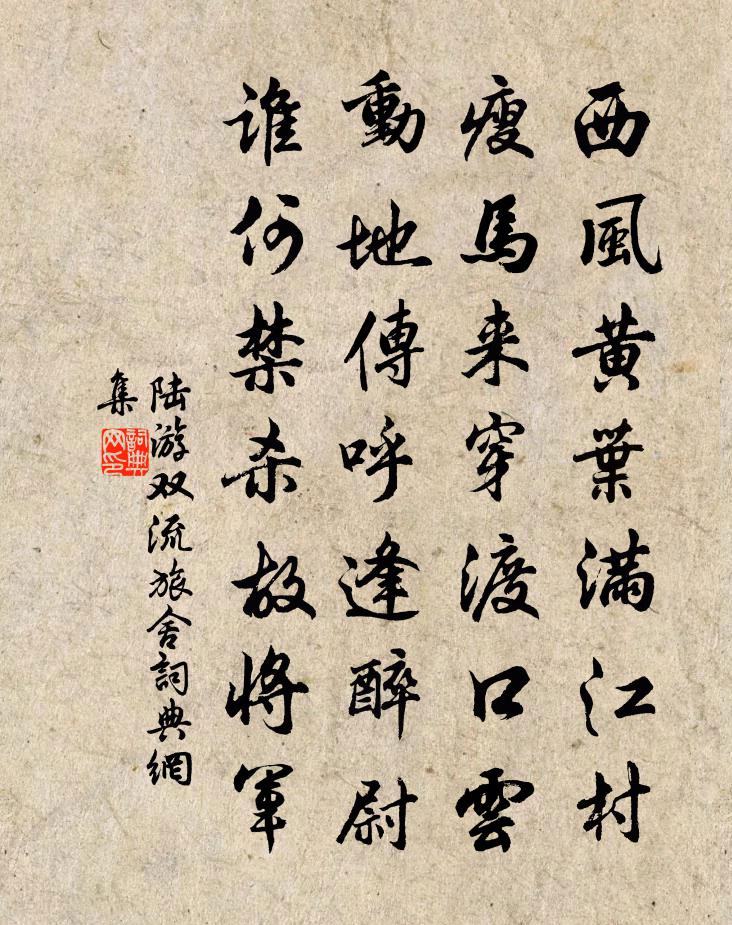 西風黄葉满江村
瘦馬来穿渡口雲
動地傳呼逢醉尉
谁何禁杀故将軍
陆游双流旅舍詞典網
集
詞典
网印